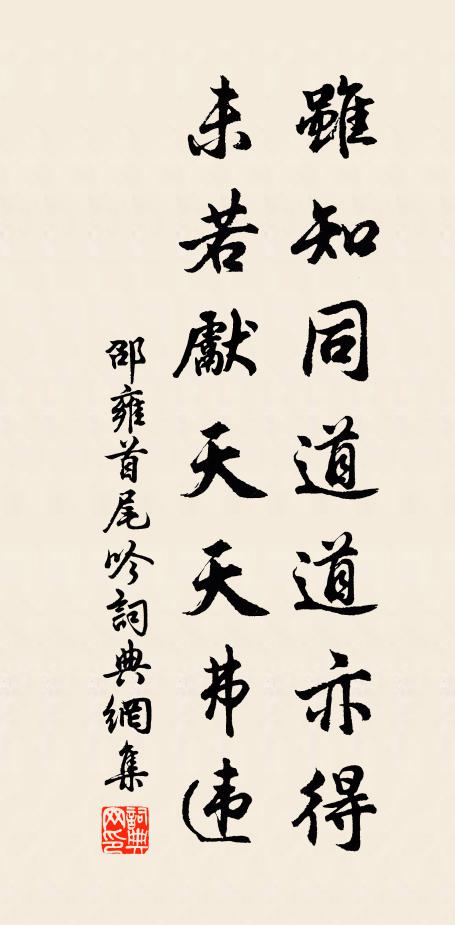 雖知同道道亦得
未若獻天天弗违
邵雍首尾吟詞典網集
詞典网印